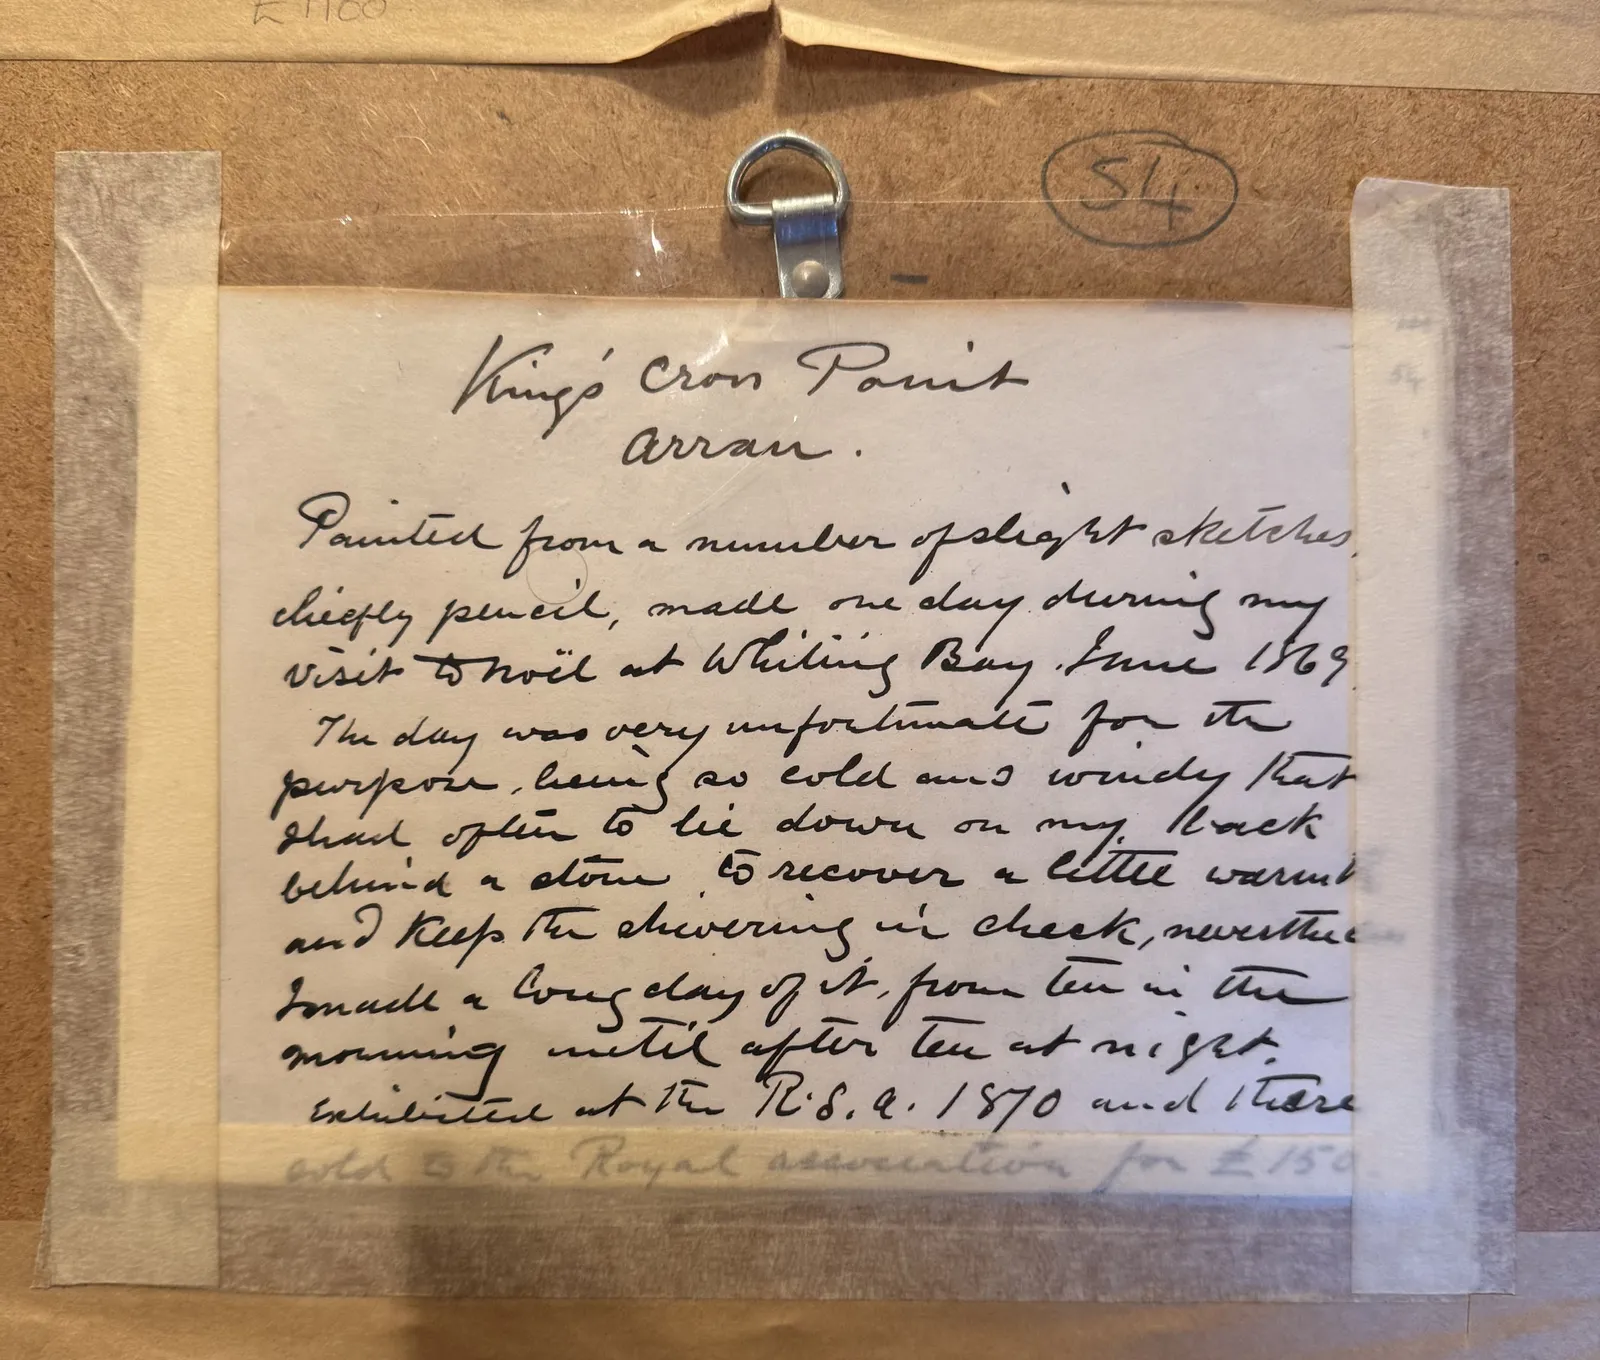 £1100
54
King's Cross Point
Arran.
Painted from a number of slight sketches,
chiefly pencil, made one day during my
visit to Noël at Whiting Bay. June 1869
The day was very unfortunate for the
purpose, being so cold and windy that
I had often to lie down on my back
behind a stone to recover a little warmth
and keep the shivering in check, neverthe
I made a long day of it, from ten in the
morning until after ten at night.
Exhibited at the R.S.A. 1870 and there
sold to the Royal association for £150